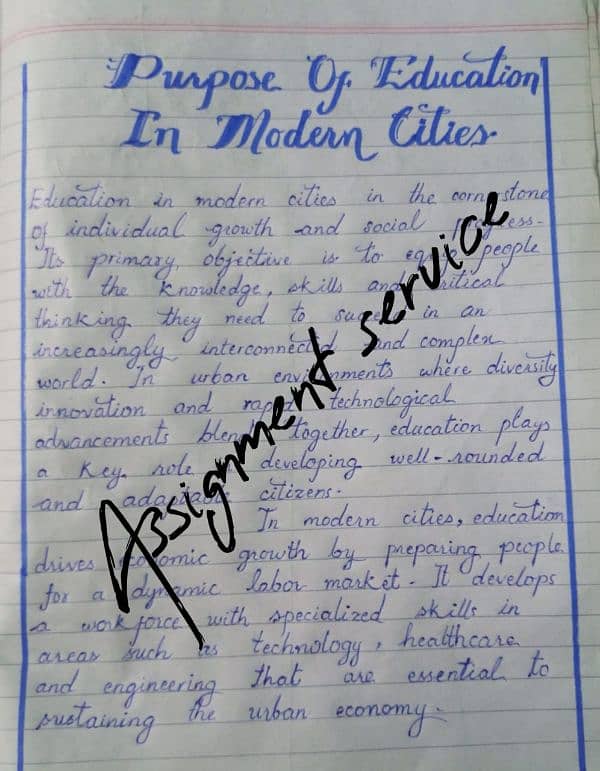 Purpose Of Education
In Modern Cities.
Education in modern cities in the cornerstone
of individual growth and social
Its primary objective is to equip people
with the knowledge, skills and critical
thinking they need to in an
increasingly interconnected and complex
world. In urban environments where diversity
innovation and rapid technological
advancements blend together, education plays
a key role developing well-rounded
and adaptable citizens.
In modern cities, education
drives economic growth by preparing people
for a dynamic labor market. It develops
a workforce with specialized skills in
areas such as technology, healthcare
and engineering that are essential to
sustaining the urban economy.
Assignment service